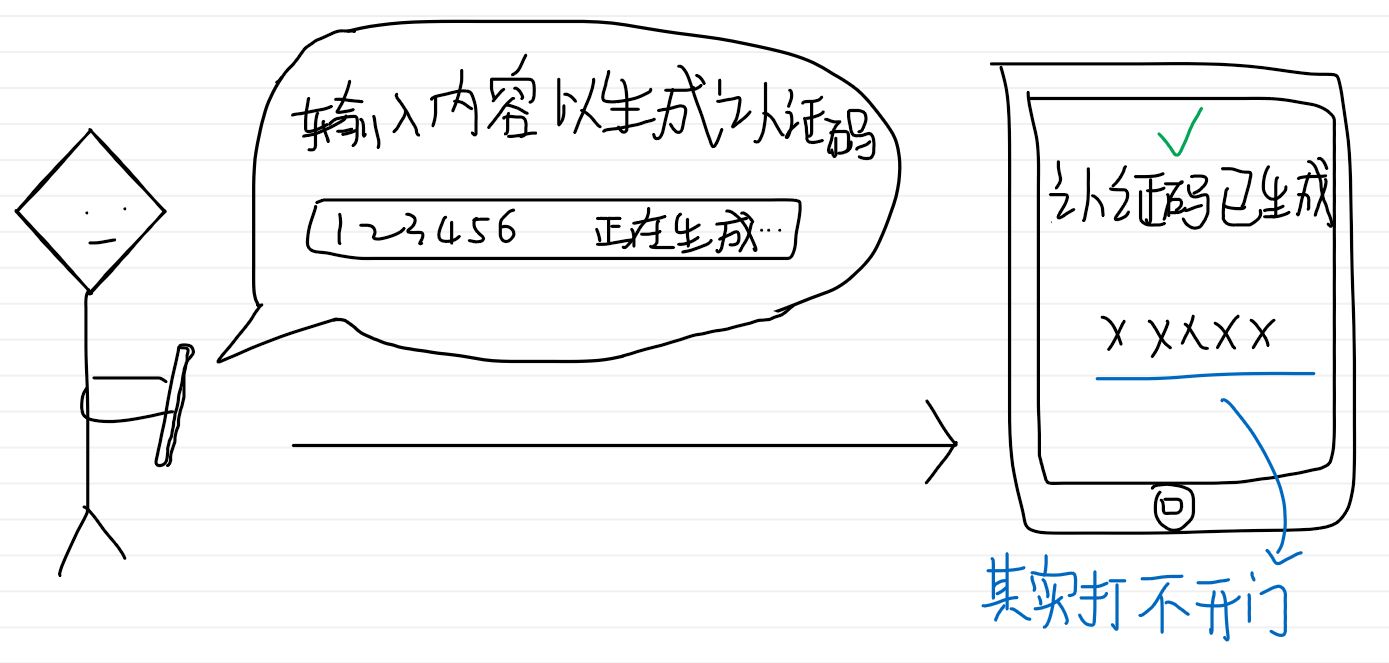 输入内容以生成认证码
123456 正在生成…
✓
认证码已生成
xxxxx
其实打不开门